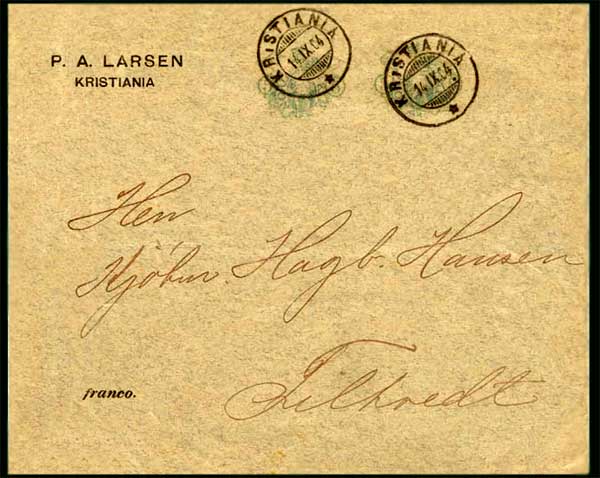 P. A. LARSEN
KRISTIANIA
KRISTIANIA
14.IX.04
KRISTIANIA
14.IX.04
Herr
Kjøbm. Hagb. Hansen
Filtvedt
franco.